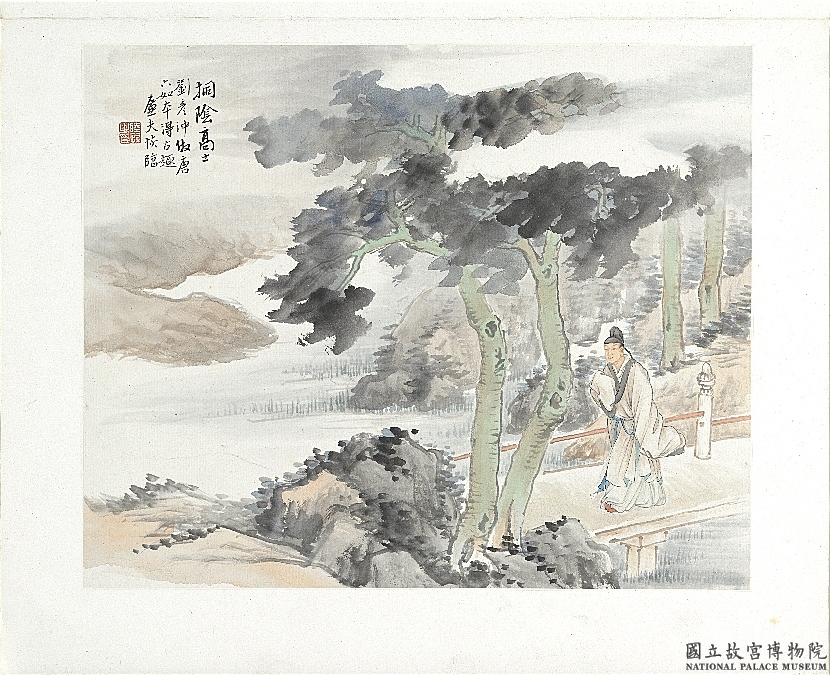 桐陰高士
劉彥沖仿唐
六如本得古趣
廉夫陸恢臨
國立故宮博物院
NATIONAL PALACE MUSEUM